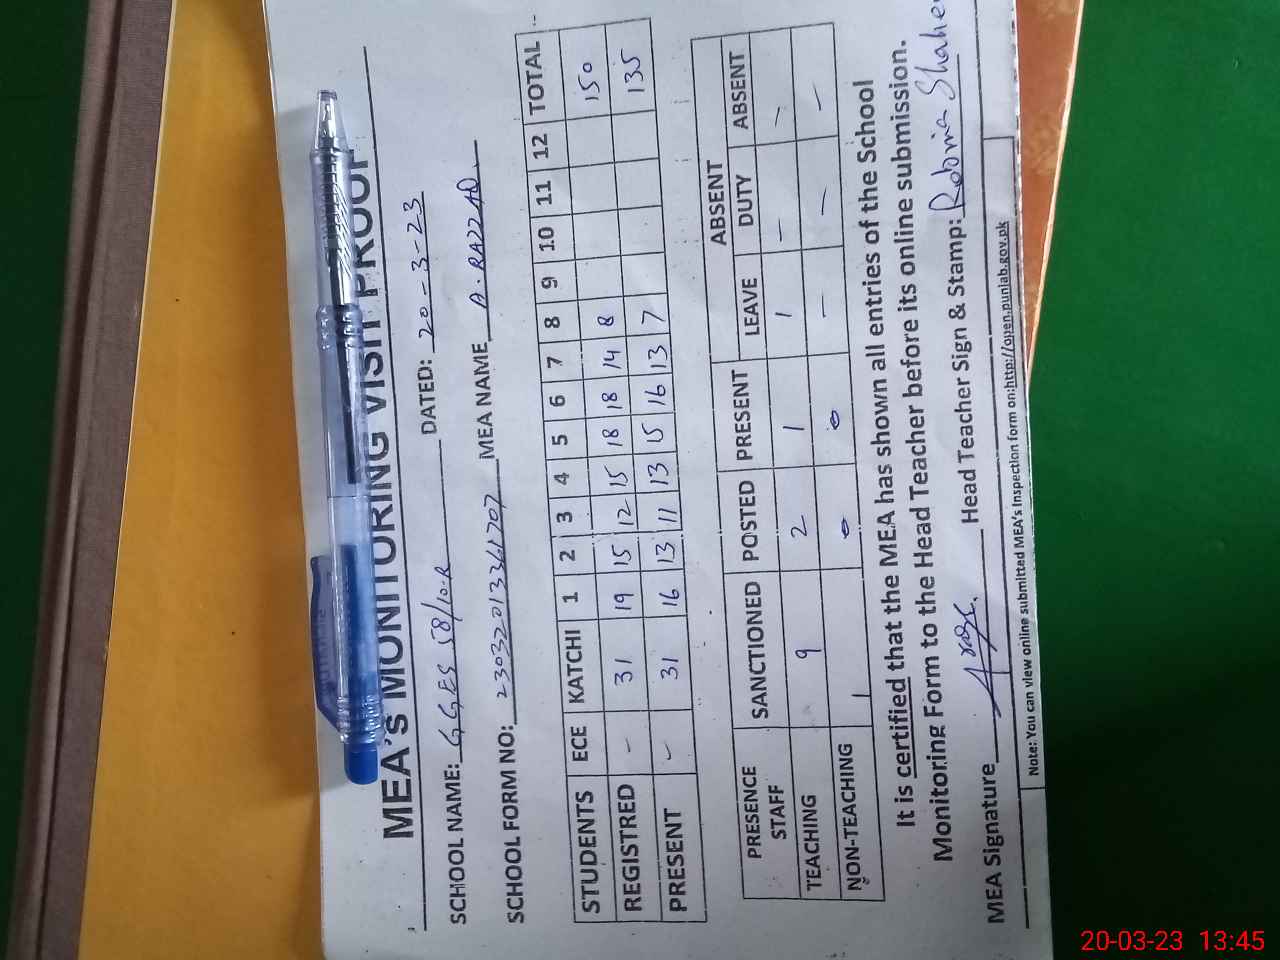 MEA's MONITORING VISIT PROOF
SCHOOL NAME: G.G.E.S 58/10-R DATED: 20-3-23
SCHOOL FORM NO: 23032013361707 MEA NAME A.RAZZAQ
STUDENTS ECE KATCHI 1 2 3 4 5 6 7 8 9 10 11 12 TOTAL
REGISTRED - 31 19 15 12 15 18 18 14 8 150
PRESENT - 31 16 13 11 13 15 16 13 7 135
PRESENCE STAFF SANCTIONED POSTED PRESENT LEAVE ABSENT DUTY ABSENT
TEACHING 9 2 1 1 - -
NON-TEACHING 1 0 0 - - -
It is certified that the MEA has shown all entries of the School
Monitoring Form to the Head Teacher before its online submission.
MEA Signature Head Teacher Sign & Stamp: Robina Shahe
Note: You can view online submitted MEA's Inspection form on:http://open.punlab.gov.pk
20-03-23 13:45